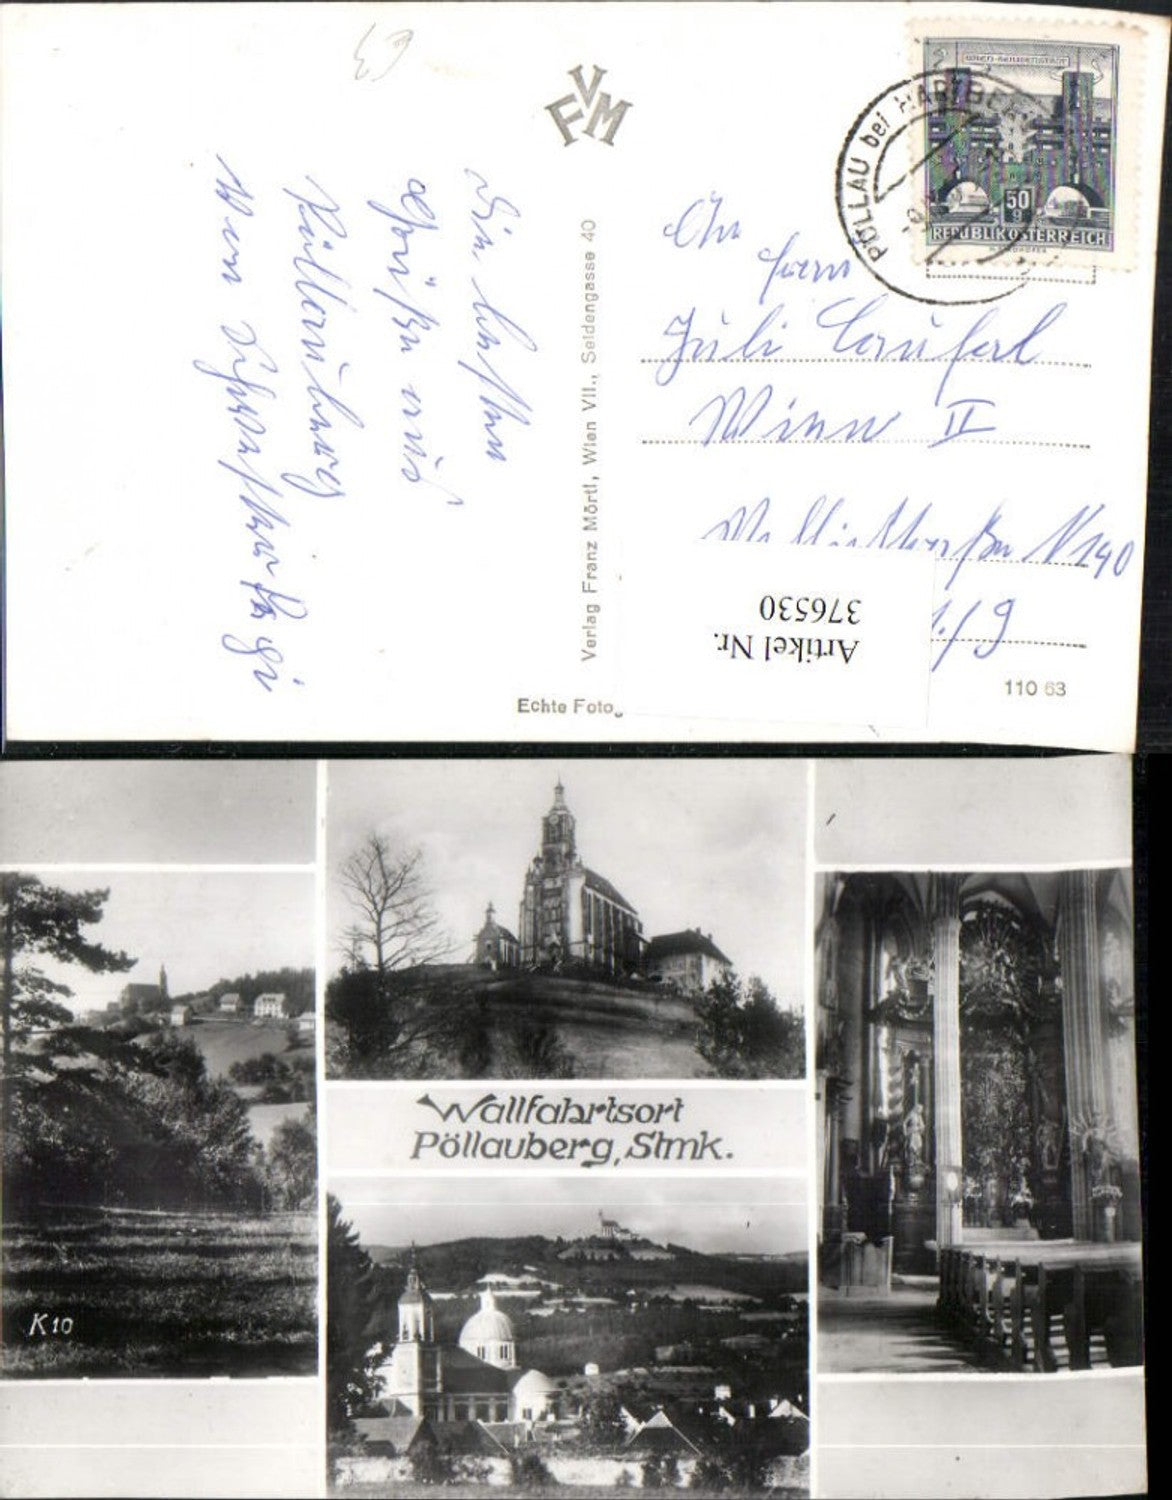 FVM
Die besten
Grüße aus
Pöllauberg
Verlag Franz Mörtl, Wien VII., Seidengasse 40
Echte Fotog
PÖLLAU bei HARTBERG
WIEN-HEILIGENSTADT
50 g
REPUBLIK ÖSTERREICH
An
Frau
Juli
Wien II
N 140
1./9
110 63
Artikel Nr.
376530
Wallfahrtsort
Pöllauberg, Stmk.
K 10